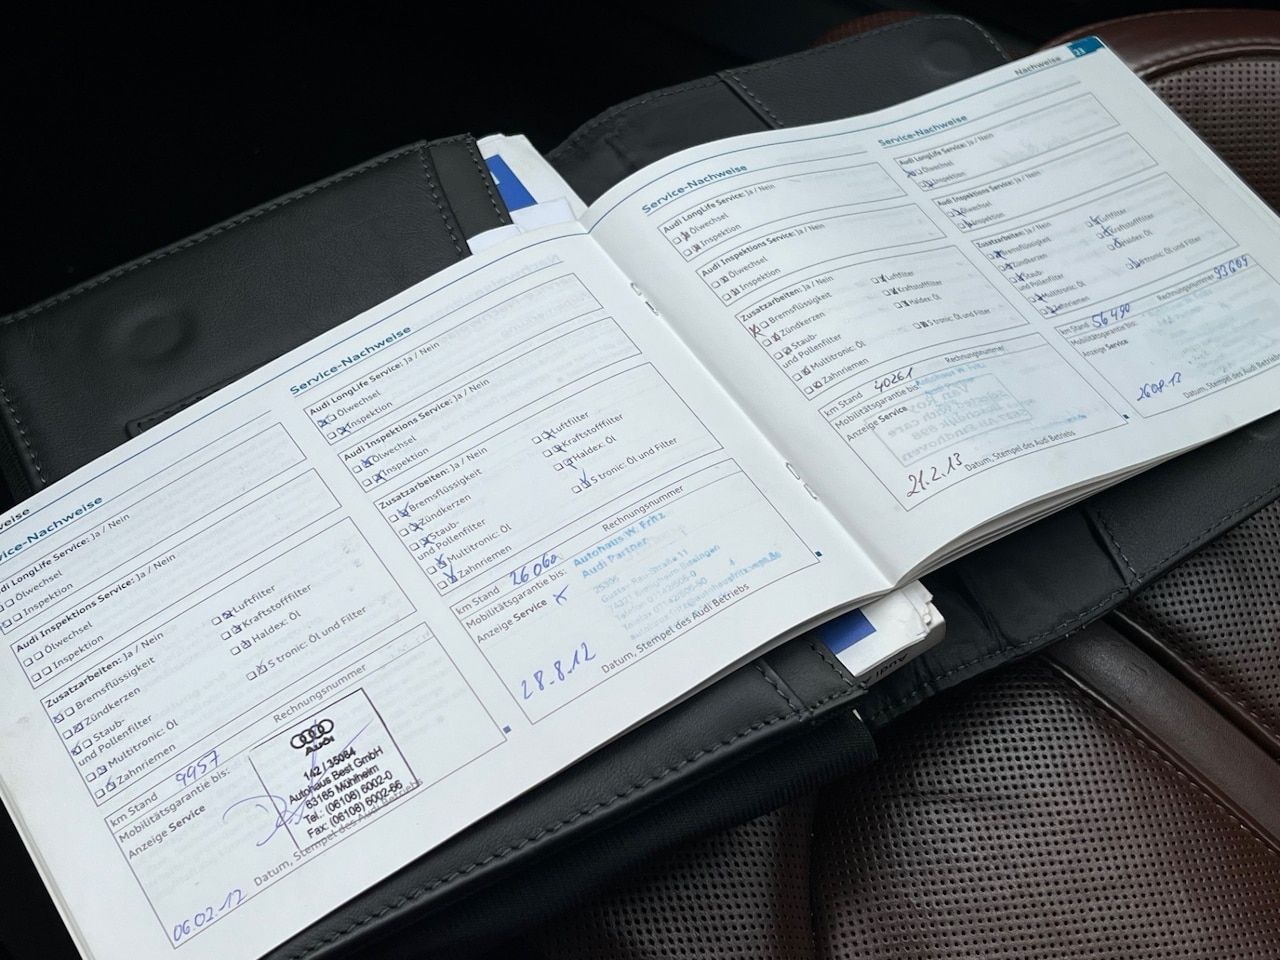 Service-Nachweise
Audi LongLife Service: Ja / Nein
Ölwechsel
Inspektion
Audi Inspektions Service: Ja / Nein
Ölwechsel
Inspektion
Zusatzarbeiten: Ja / Nein
Bremsflüssigkeit
Zündkerzen
Staub-
und Pollenfilter
Multitronic: Öl
Zahnriemen
Luftfilter
Kraftstofffilter
Haldex: Öl
S tronic: Öl und Filter
km Stand 9957
Rechnungsnummer
Mobilitätsgarantie bis:
Anzeige Service
Audi
142 / 35084
Autohaus Best GmbH
63165 Mühlheim
Tel.: (06108) 6002-0
Fax: (06108) 6002-66
06.02.12
Datum, Stempel des Audi Betriebs
Service-Nachweise
Audi LongLife Service: Ja / Nein
Ölwechsel
Inspektion
Audi Inspektions Service: Ja / Nein
Ölwechsel
Inspektion
Zusatzarbeiten: Ja / Nein
Bremsflüssigkeit
Zündkerzen
Staub-
und Pollenfilter
Multitronic: Öl
Zahnriemen
Luftfilter
Kraftstofffilter
Haldex: Öl
S tronic: Öl und Filter
km Stand 26060
Rechnungsnummer
Mobilitätsgarantie bis:
Anzeige Service
Autohaus W. Fritz
Audi Partner
28.8.12
Datum, Stempel des Audi Betriebs
Service-Nachweise
Audi LongLife Service: Ja / Nein
Ölwechsel
Inspektion
Audi Inspektions Service: Ja / Nein
Ölwechsel
Inspektion
Zusatzarbeiten: Ja / Nein
Bremsflüssigkeit
Zündkerzen
Staub-
und Pollenfilter
Multitronic: Öl
Zahnriemen
Luftfilter
Kraftstofffilter
Haldex: Öl
S tronic: Öl und Filter
km Stand 40261
Rechnungsnummer
Mobilitätsgarantie bis:
Anzeige Service
Autohaus W. Fritz
21.2.13
Datum, Stempel des Audi Betriebs
Nachweise 23
Service-Nachweise
Audi LongLife Service: Ja / Nein
Ölwechsel
Inspektion
Audi Inspektions Service: Ja / Nein
Ölwechsel
Inspektion
Zusatzarbeiten: Ja / Nein
Bremsflüssigkeit
Zündkerzen
Staub-
und Pollenfilter
Multitronic: Öl
Zahnriemen
Luftfilter
Kraftstofffilter
Haldex: Öl
S tronic: Öl und Filter
km Stand 56490
Rechnungsnummer
Mobilitätsgarantie bis:
Anzeige Service
Datum, Stempel des Audi Betriebs